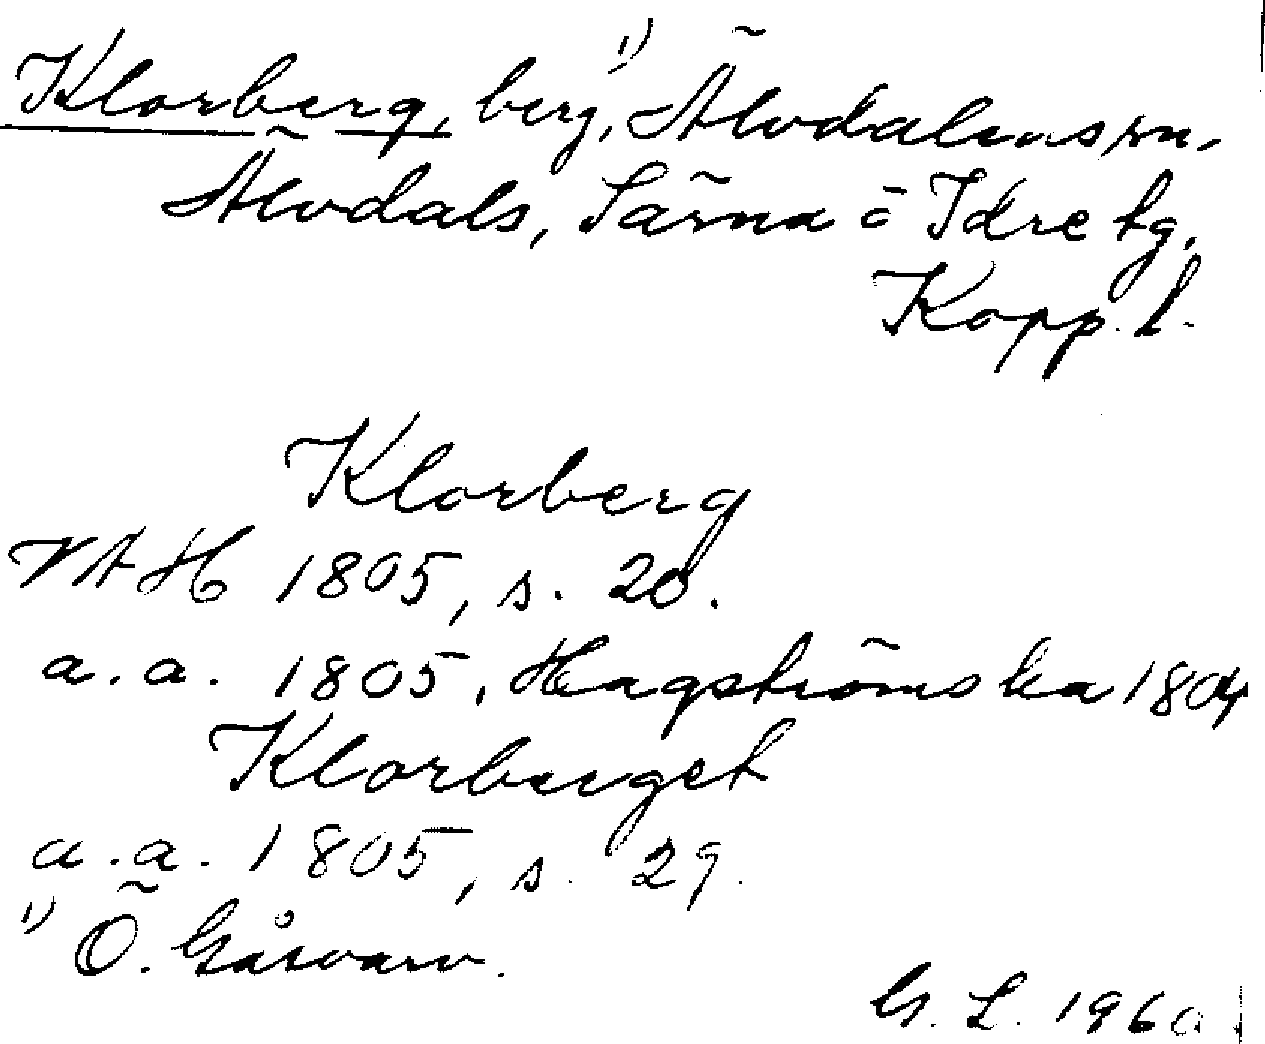 Klorberg, berg,¹⁾ Älvdalens sn.
Älvdals, Särna o Idre tg.
Kopp. l.
Klorberg
VAH 1805, s. 20.
a.a. 1805, Hagströmska 1804
Klorberget
a.a. 1805, s. 29.
¹⁾ Ö. Gåsvarv.
G. L. 1960